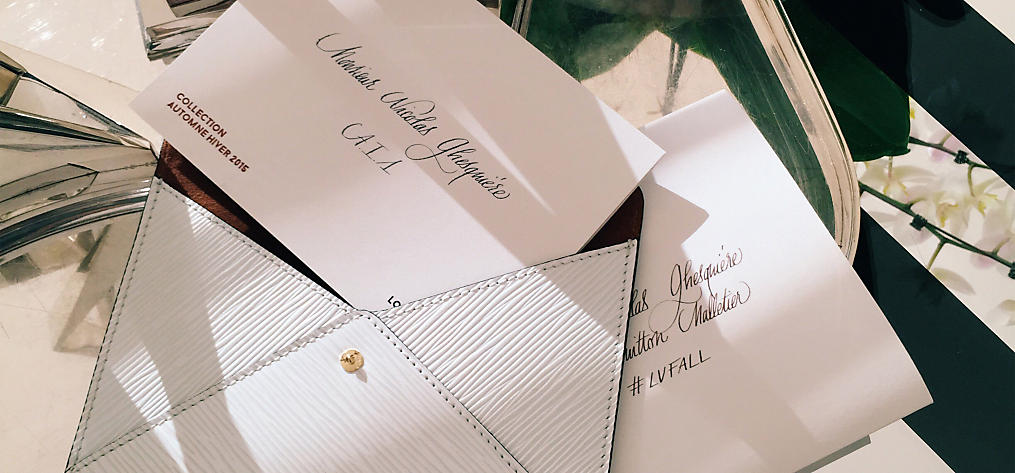 Monsieur Nicolas Ghesquière
CAIA
COLLECTION
AUTOMNE HIVER 2015
LO
las Ghesquière
uitton Malletier
#LVFALL